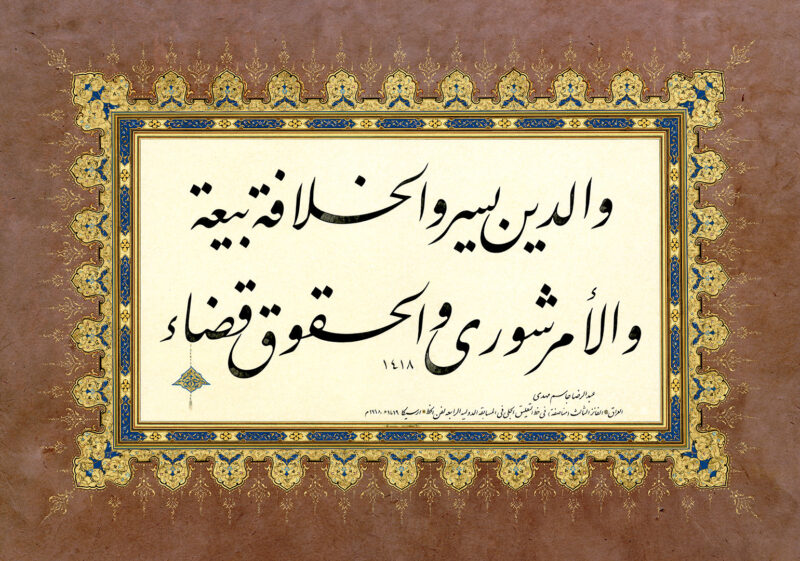 والدين يسير والخلافة بيعة
والأمر شورى والحقوق قضاء
١٤١٨
عبد الرضا جاسم مهدي
العراق * الفائز الثالث (مناصفة) في خط التعليق الجلي في المسابقة الدولية الرابعة لفن الخط * ارسيكا